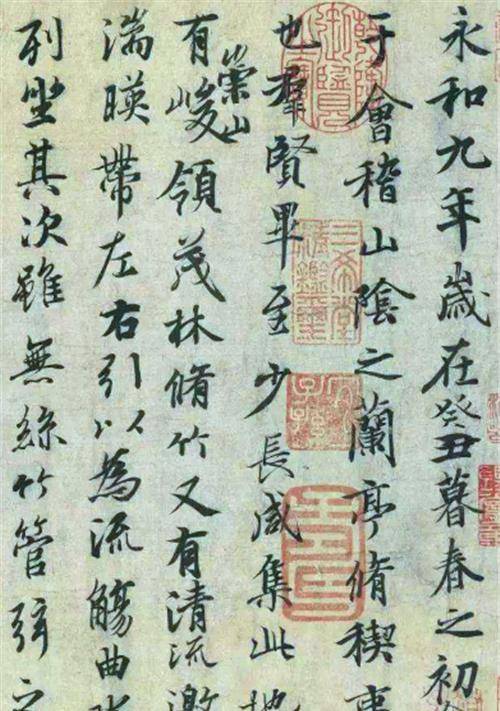 永和九年歲在癸丑暮春之初
于會稽山陰之蘭亭脩稧事
也羣賢畢至少長咸集此地
有崇山峻領茂林脩竹又有清流激
湍暎帶左右引以為流觴曲水
列坐其次雖無絲竹管弦之
三希堂精鑑璽
宜子孫